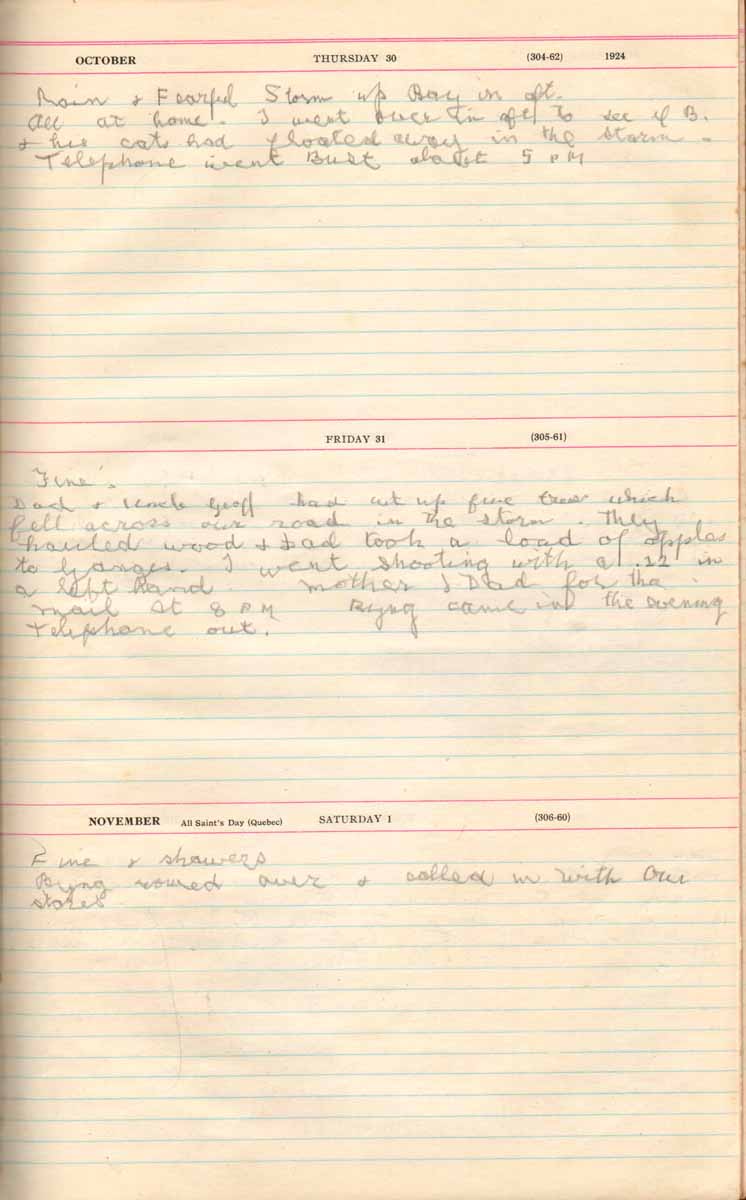 OCTOBER THURSDAY 30 (304-62) 1924
Rain & Fearful Storm up Bay in aft.
All at home. I went over in aft to see if B.
& his cats had floated away in the storm.
Telephone went Bust about 5 PM
FRIDAY 31 (305-61)
Fine.
Dad & Uncle Geoff had cut up five trees which
fell across our road in the storm. They
hauled wood & Dad took a load of apples
to Ganges. I went shooting with a .22 in
a left hand Mother & Dad for the
mail at 8 PM Byng came in the evening
Telephone out.
NOVEMBER All Saint's Day (Quebec) SATURDAY 1 (306-60)
Fine & showers
Byng rowed over & called in with our
stores